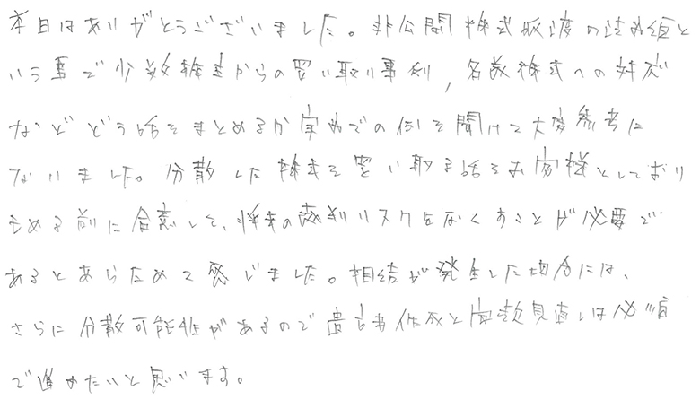 本日はありがとうございました。非公開株式譲渡の法的組と
いう事で少数株主からの買い取り事例、名義株式への対応
などどう話をまとめるか実務での例を聞けて大変参考に
なりました。分散した株式を買い取る話をお客様としており
進める前に合意して、将来の裁判リスクをなくすことが必要で
あるとあらためて感じました。相続が発生した場合には、
さらに分散可能性があるので遺言書作成と定款見直しは必須
で進めたいと思います。